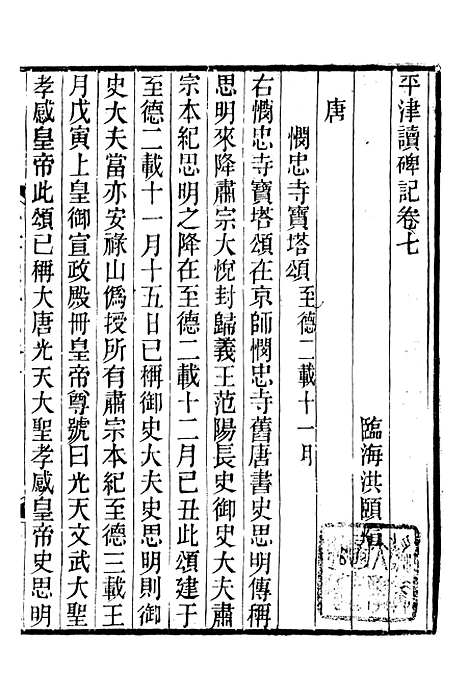 平津讀碑記卷七
臨海洪頤煊
唐
憫忠寺寶塔頌至德二載十一月
右憫忠寺寶塔頌在京師憫忠寺舊唐書史思明傳稱
思明來降肅宗大悅封歸義王范陽長史御史大夫肅
宗本紀思明之降在至德二載十二月己丑此頌建于
至德二載十一月十五日已稱御史大夫史思明則御
史大夫當亦安祿山僞授所有肅宗本紀至德三載王
月戊寅上皇御宣政殿冊皇帝尊號曰光天文武大聖
孝感皇帝此頌已稱大唐光天大聖孝感皇帝史思明